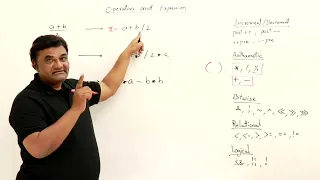 Operators and Expression
a+b
= a+b/2
/2*c
*a-b*b
( )
Increment/Decrement
post++, post--
++pre, --pre
Arithmetic
*, /, %
+, -
Bitwise
&, |, ~, ^, <<, >>
Relational
<, <=, >, >=, ==, !=
Logical
&&, ||, !